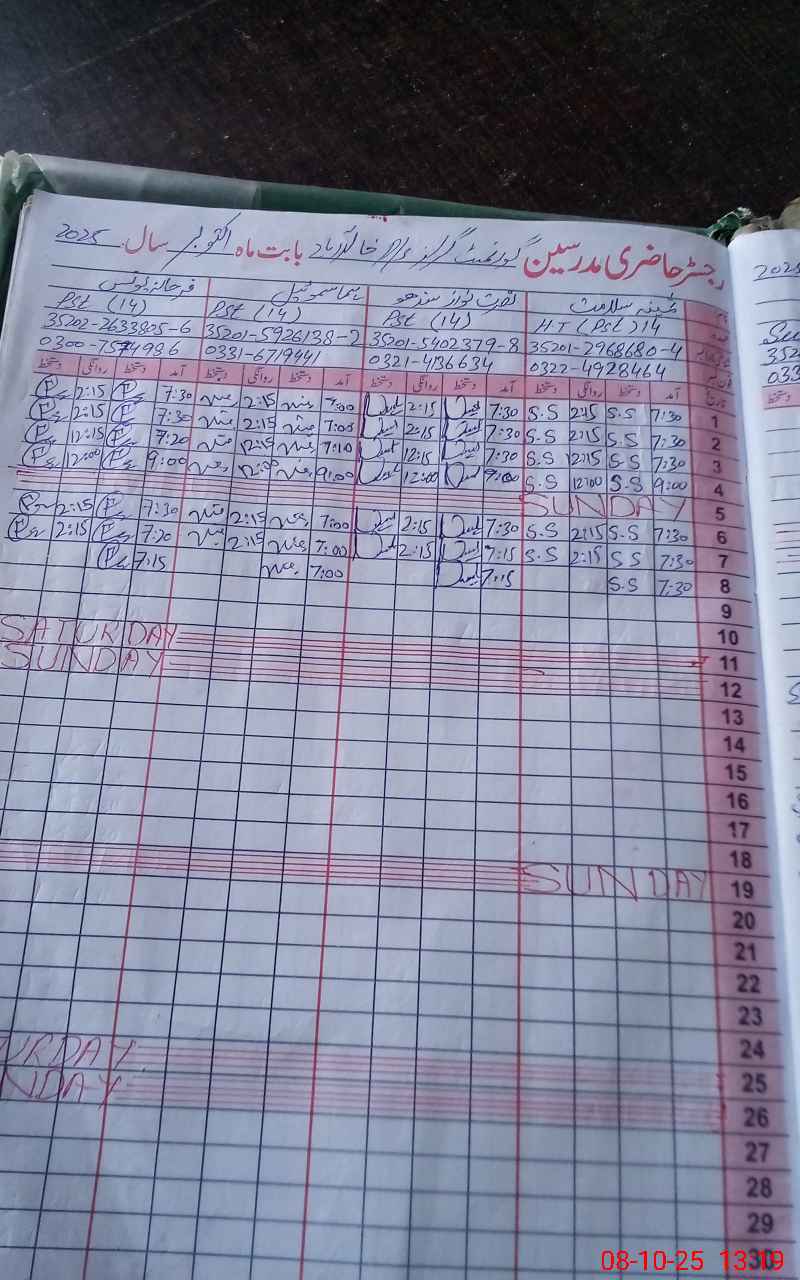 رجسٹر حاضری مدرسین گورنمنٹ گرلز خالد آباد بابت ماہ اکتوبر سال 2025
ثمینہ سلامت نصرت نواز سندھو سیما سموئیل فرحانہ یونس
H.T (Pst) 14 Pst (14) Pst (14) Pst (14)
35201-2968680-4 35201-5402379-8 35201-5926138-2 35202-2633805-6
0322-4928464 0321-4136634 0331-6719441
تاریخ آمد دستخط روانگی دستخط آمد دستخط روانگی دستخط آمد دستخط روانگی دستخط آمد دستخط روانگی دستخط
1 7:30 S.S 2:15 S.S 7:30 2:15 7:00 2:15 7:30 2:15
2 7:30 S.S 2:15 S.S 7:30 2:15 7:00 2:15 7:30 2:15
3 7:30 S.S 12:15 S.S 7:30 12:15 7:10 12:15 7:20 12:15
4 9:00 S.S 12:00 S.S 9:00 12:00 9:00 12:00 9:00 12:00
5 SUNDAY
6 7:30 S.S 2:15 S.S 7:30 2:15 7:00 2:15 7:30 2:15
7 7:30 S.S 2:15 S.S 7:15 2:15 7:00 2:15 7:20 2:15
8 7:30 S.S 7:15 7:00 7:15
9
10
11 SATURDAY
12 SUNDAY
13
14
15
16
17
18
19 SUNDAY
20
21
22
23
24
25 URDAY
26 NDAY
27
28
29
30
2025
352
033
دستخط
08-10-25 13:19